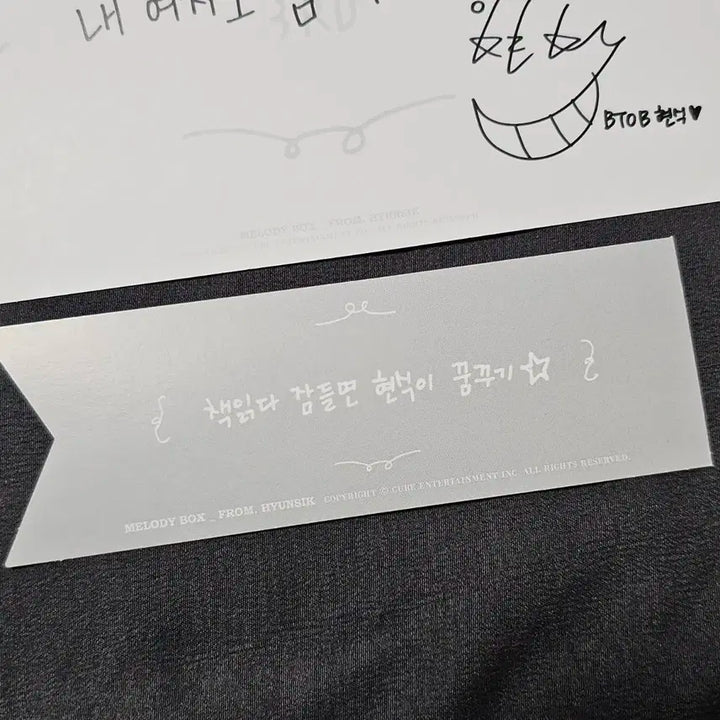 내 여
BTOB 현식♥
MELODY BOX _ FROM. HYUNSIK
책읽다 잠들면 현식이 꿈꾸기☆
MELODY BOX _ FROM. HYUNSIK COPYRIGHT ⓒ CUBE ENTERTAINMENT INC. ALL RIGHTS RESERVED.